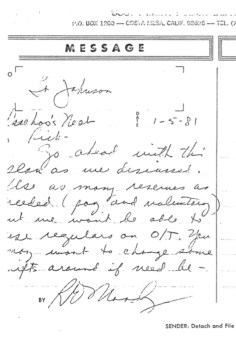 P.O. BOX 1200 — COSTA MESA, CALIF. 92626 — TEL.
MESSAGE
Lt Johnson
Nest
DATE 1-5-81
Go ahead with this
plan as we discussed.
Use as many reserves as
needed (pay and voluntary)
but we won't be able to
use regulars on O/T. You
may want to change some
shifts around if need be -
BY
SENDER: Detach and File